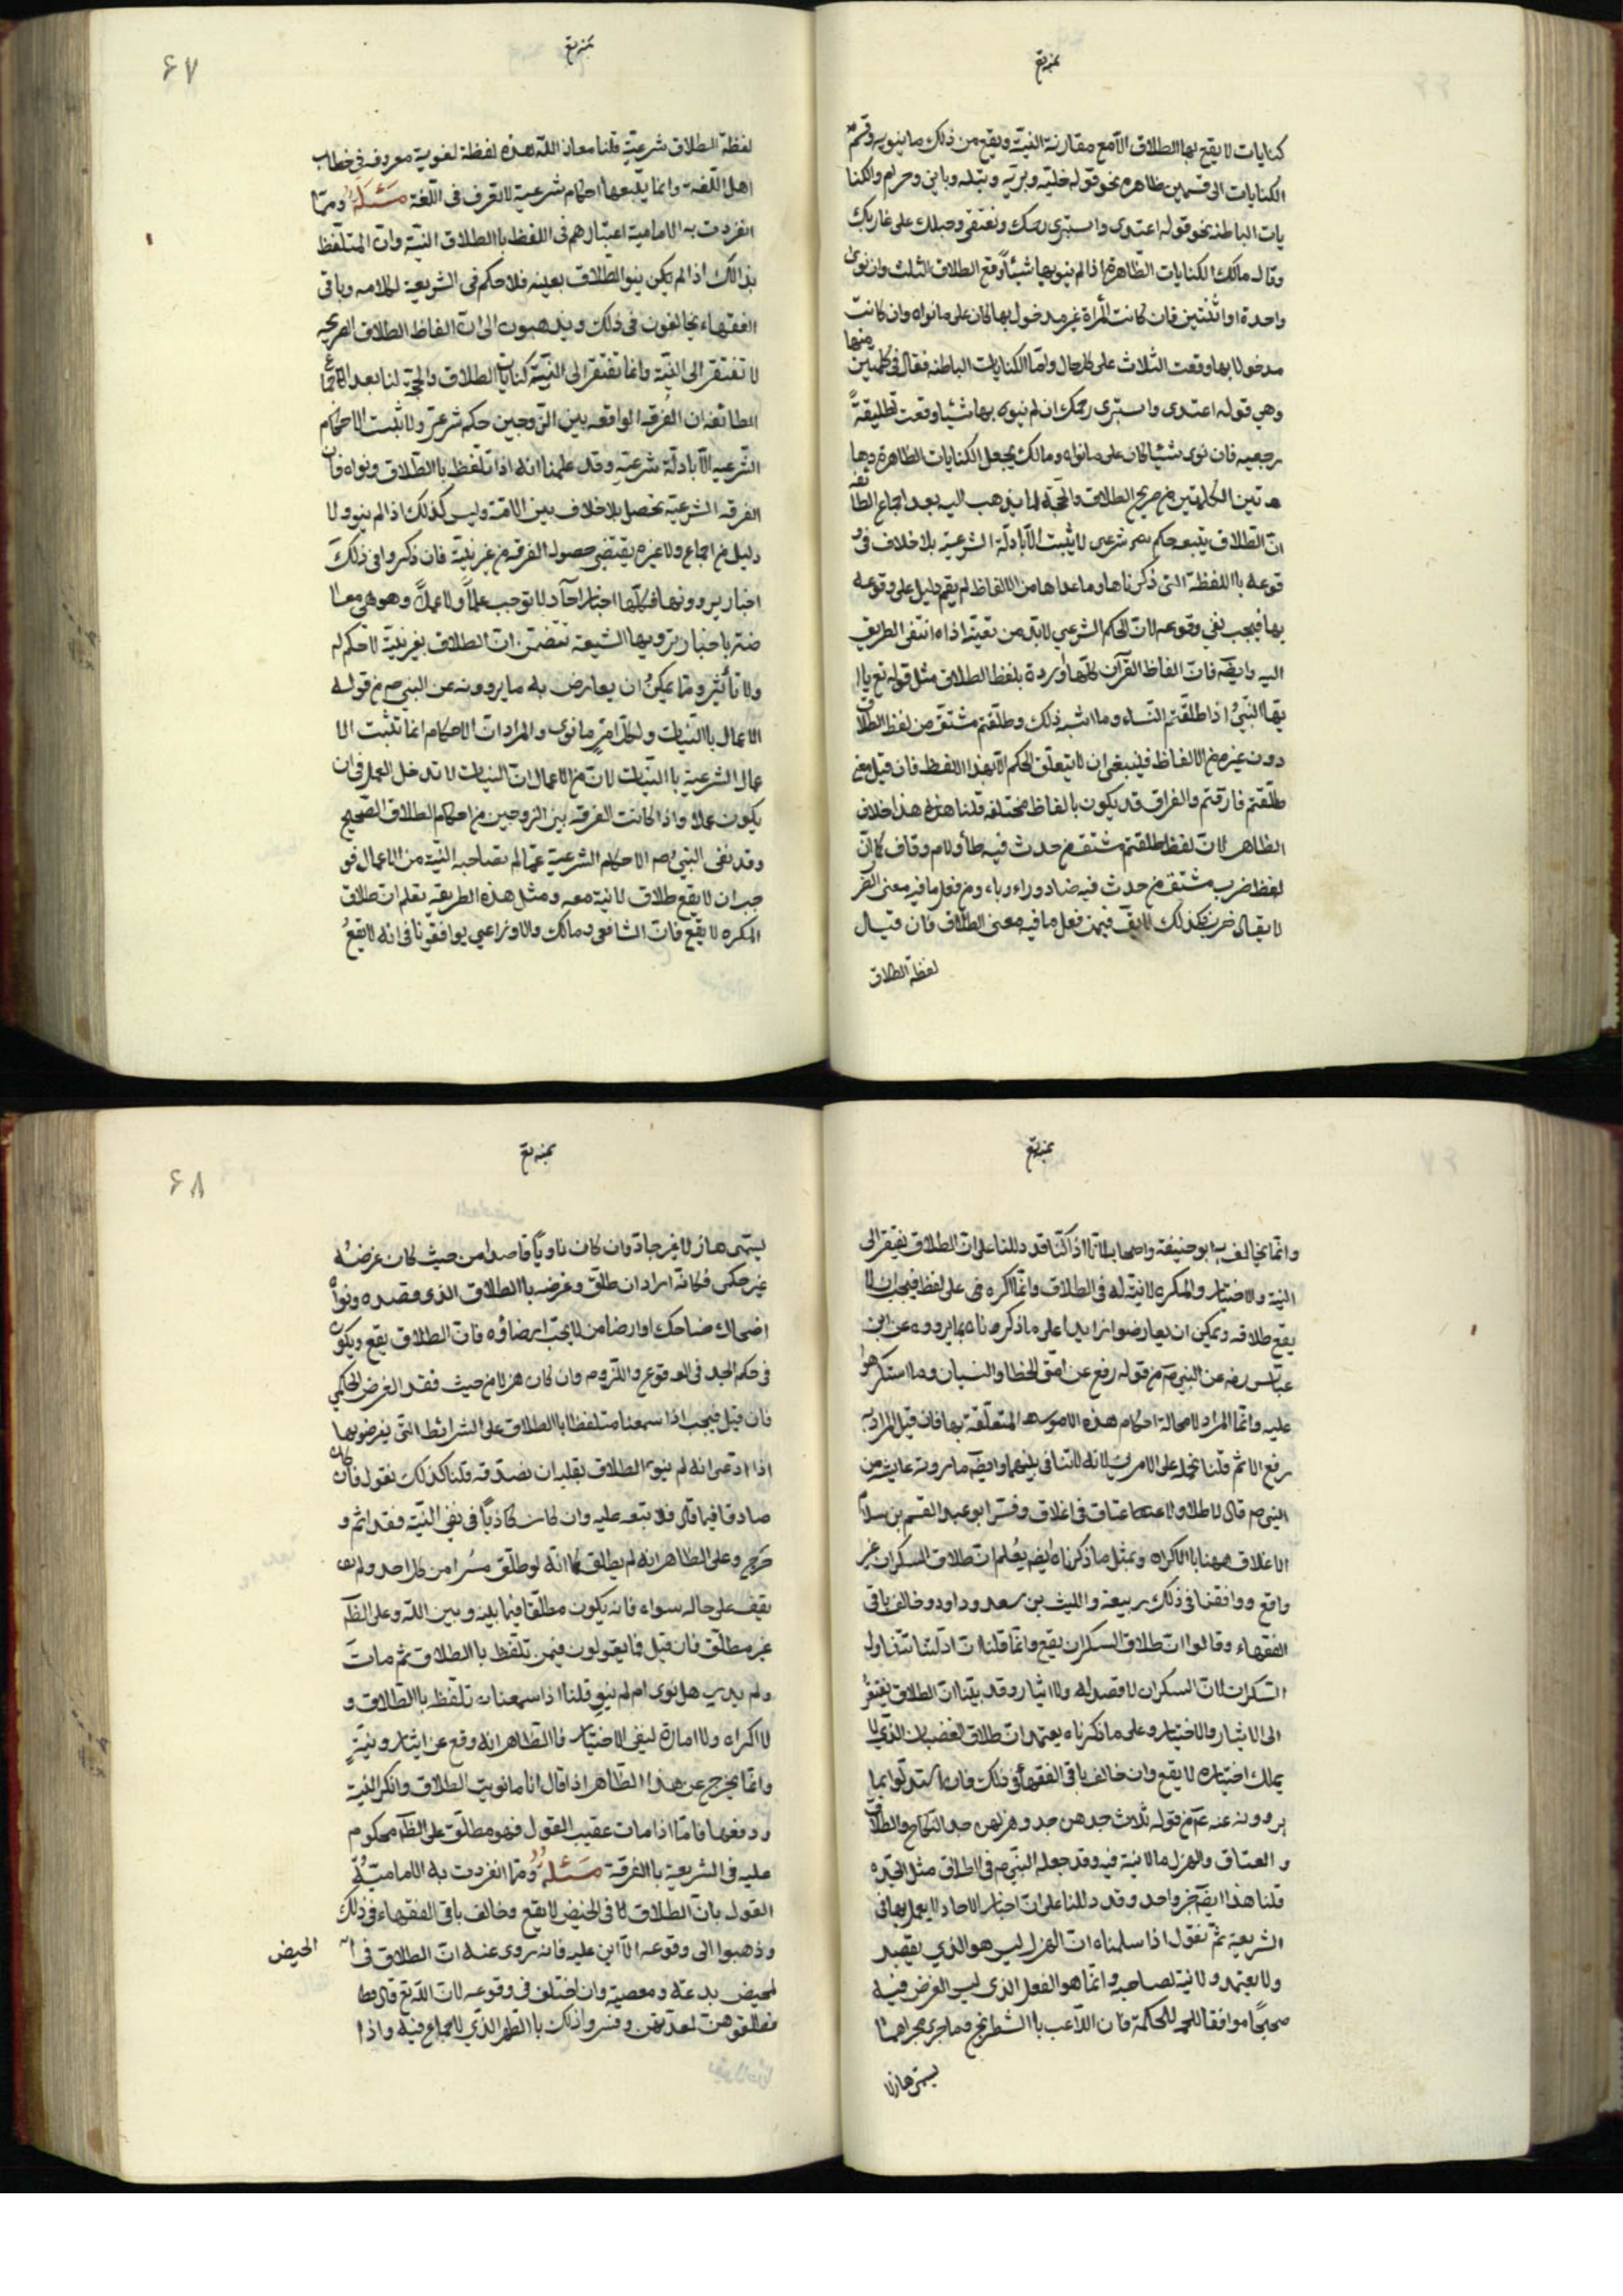 كنايات لا يقع بها الطلاق الا مع مقارنة النية ويقع من ذلك ما ينويه وقسم
الكنايات الى قسمين ظاهره نحو قوله خليه وبريه وبتله وباين وحرام والكنا
يات الباطنه نحو قوله اعتدى واستبرى رحمك وتقنعى وحبلك على غاربك
وقال مالك الكنايات الظاهرة اذا لم ينو بها شيئاً وقع الطلاق الثلث وان نوى
واحدة او اثنتين فان كانت المرأة غير مدخول بها كان على ما نواه وان كانت
مدخولا بها وقعت الثلاث على كل حال واما الكنايات الباطنه فقال فى كلمتين منها
وهي قوله اعتدى واستبرى رحمك ان لم ينوى بها شيئا وقعت تطليقةً
رجعيه فان نوى شيئا كان على ما نواه ومالك يجعل الكنايات الظاهرة
هتين الكلمتين من صريح الطلاق والحجة لما يذهب اليه بعد اجماع الطائفه
ان الطلاق يتبعه حكم شرعى لا يثبت الا بادلة الشرعية بلا خلاف فى و
قوعه باللفظة التى ذكرناها وما عداها من الالفاظ لم يقم دليل على وقوعه
بها فيجب نفي وقوعه لان الحكم الشرعي لابد من نفيه اذا انتفى الطريق
اليه وايضه فان الفاظ القرآن كلها واردة بلفظ الطلاق مثل قوله تع يا ا
يها النبي اذا طلقتم النساء وما اشبه ذلك وطلقتم مشتق من لفظ الطلاق
دون غيره من الالفاظ فينبغى ان لا يتعلق الحكم الا بهذا اللفظ فان قيل معنى
طلقتم فارقتم والفراق قد يكون بالفاظ مختلفه قلنا هذا خلاف
الظاهر لان لفظ طلقتم مشتق من حدث فيه طأ ولام وقاف كما ان
لفظ ضرب مشتق من حدث فيه ضاد وراء وباء ومن فعل ما فيه معنى الضر
لا يقال ضرب فكذلك لا يق فيمن فعل ما فيه معنى الطلاق فان قيل
لفظة الطلاق
۶۷
لفظة الطلاق شرعية قلنا معاذ الله هذه لفظة لغوية معروفه فى خطاب
اهل اللغة وانما يتبعها احكام شرعية لا تعرف فى اللغة مسئلة ومما
انفردت به الامامية اعتبارهم فى اللفظ باالطلاق النية وان المتلفظ
بذالك اذا لم يكن ينو الطلاق بعينه فلا حكم فى الشريعة لكلامه وباقى
الفقهاء يخالفون فى ذلك ويذهبون الى ان الفاظ الطلاق الصريحه
لا تفتقر الى النية وانما تفتقر الى النية كنايات الطلاق والحجة لنا بعد اجماع
الطائفه ان الفرقه الواقعه بين الزوجين حكم شرعى ولا تثبت الاحكام
الشرعيه الا بادلة شرعيه وقد علمنا انه اذا تلفظ باالطلاق ونواه فان
الفرقه الشرعية تحصل بلا خلاف بين الامة وليس كذلك اذا لم ينو ولا
دليل من اجماع ولا غيره يقتضى حصول الفرقه من غير نية فان ذكروا فى ذلك
اخبار يروونها فكلها اخبار آحاد لا توجب علماً ولا عملاً وهو هى معا
ضة باخبار ترويها الشيعه تتضمن ان الطلاق بغير نية لا حكم له
ولا تأثير ومما يمكن ان يعارض به ما يروونه عن النبي ص من قوله
الاعمال باالنيات ولكل امرء ما نوى والمراد ان الاحكام انما تثبت الا
عمال الشرعيه باالنيات لان من الاعمال ان النيات لا تدخل العمل فى ان
يكون عملا واذا كانت الفرقه بين الزوجين من احكام الطلاق الصحيح
وقد نفى النبي ص الاحكام الشرعية عما لم تصاحبه النية من الاعمال فو
جب ان لا يقع طلاق لا نية معه ومثل هذه الطريقه تعلم ان طلاق
المكره لا يقع فان الشافعى ومالك والاوزاعي يوافقونا فى انه لا يقع
وانما يخالف به ابو حنيفه واصحابه لانا اذا كنا قد دللنا على ان الطلاق يفتقر الى
النية والاختيار والمكره لا نية له فى الطلاق وانما اكره على لفظ فيجب ان لا
يقع طلاقه ويمكن ان يعارضوا زايدا على ما ذكرناه بما يرووه عن ابن
عباس رضه عن النبي ص من قوله رفع عن امتى الخطا والنسيان وما استكرهوا
عليه وانما المراد لا محالة احكام هذه الامور المتعلقة بها فان قيل المراد به
رفع الاثم قلنا نحمله على الامرين لانه لا تنافى بينهما وايضه ما روته عايشه من
النبى ص قال لا طلاق ولا عتاق فى اغلاق وفسر ابو عبيد القسم بن سلام
الاغلاق هيهنا باالاكراه وبمثل ما ذكرناه ايضه يعلم ان طلاق السكران غير
واقع ووافقنا فى ذلك ربيعة والليث بن سعد وداود وخالف باقى
الفقهاء وقالوا ان طلاق السكران يقع وانما قلنا ان ادلتنا تتناول
السكران لان السكران لا قصد له ولا ايثار وقد بينا ان الطلاق يفتقر
الى الايثار والاختيار وعلى ما ذكرناه يعتمد ان طلاق الغضبان الذي لا
يملك اختياره لا يقع وان خالف باقى الفقهاء فى ذلك فان استدلوا بما
يروونه عنه ع من قوله ثلاث جدهن جد وهزلهن جد النكاح والطلاق
و العتاق والهزل ما لا نية فيه وقد جعله النبى ص فى الطلاق مثل الجد
قلنا هذا ايضه خبر واحد وقد دللنا على ان اخبار الاحاد لا يعمل بها فى
الشريعه ثم نقول اذا سلمناه ان الهزل ليس هو الذي يقصد
ولا يعتمد ولا نية لصاحبه وانما هو الفعل الذى ليس الغرض فيه
صحيحاً موافقا للحكمة فان اللاعب باالشطرنج وما جرى مجراهما
يسمى هازلا
۶۸
يسمى هازلا غير جاد وان كان ناوياً قاصدا من حيث كان غرضه
غير حكمى فكانه اراد ان طلق وغرضه باالطلاق الذى قصده ونواه
اضحاك ضاحك او ارضا من لا يجب ارضاؤه فان الطلاق يقع ويكون
فى حكم الجد فى الوقوع واللزوم وان كان هزلا من حيث فقد الغرض الحكمي
فان قيل فيجب اذا سمعنا متلفظا باالطلاق على الشرائط التى يعرضونها
اذا ادعى انه لم ينو الطلاق بقلبه ان نصدقه قلنا كذلك نقول فان كان
صادقا فيما قال فلا تبعه عليه وان كان كاذباً فى نفى النية فقد اثم و
حرج وعلى الظاهر انه لم يطلق كما انه لو طلق مسرا من كل احد ولم
يقف على حاله سواه فانه يكون مطلقا فيما بينه وبين الله وعلى الظآ
غير مطلق فان قيل فما يقولون فيمن تلفظ باالطلاق ثم مات
ولم يدر هل نوى ام لم ينو قلنا اذا سمعناه تلفظ باالطلاق و
لا اكراه ولا امارة لنفى الاختيار فاالظاهر انه وقع عن ايثار ونية
وانما يخرج عن هذا الظاهر اذا قال انا ما نويت الطلاق وانكر النية
ودفعها فاما اذا مات عقيب القول فهو مطلق على الظآ محكوم
عليه فى الشريعه باالفرقة مسئله ومما انفردت به الاماميه
القول بان الطلاق فى الحيض لا يقع وخالف باقى الفقهاء فى ذلك
وذهبوا الى وقوعه الا ابن عليه فانه روى عنه ان الطلاق فى
الحيض
لحيض بدعة ومعصية وان اختلف فى وقوعه لان الله تع قال
فطلقوهن لعدتهن وفسروا ذلك باالطهر الذي لا جماع فيه واذا